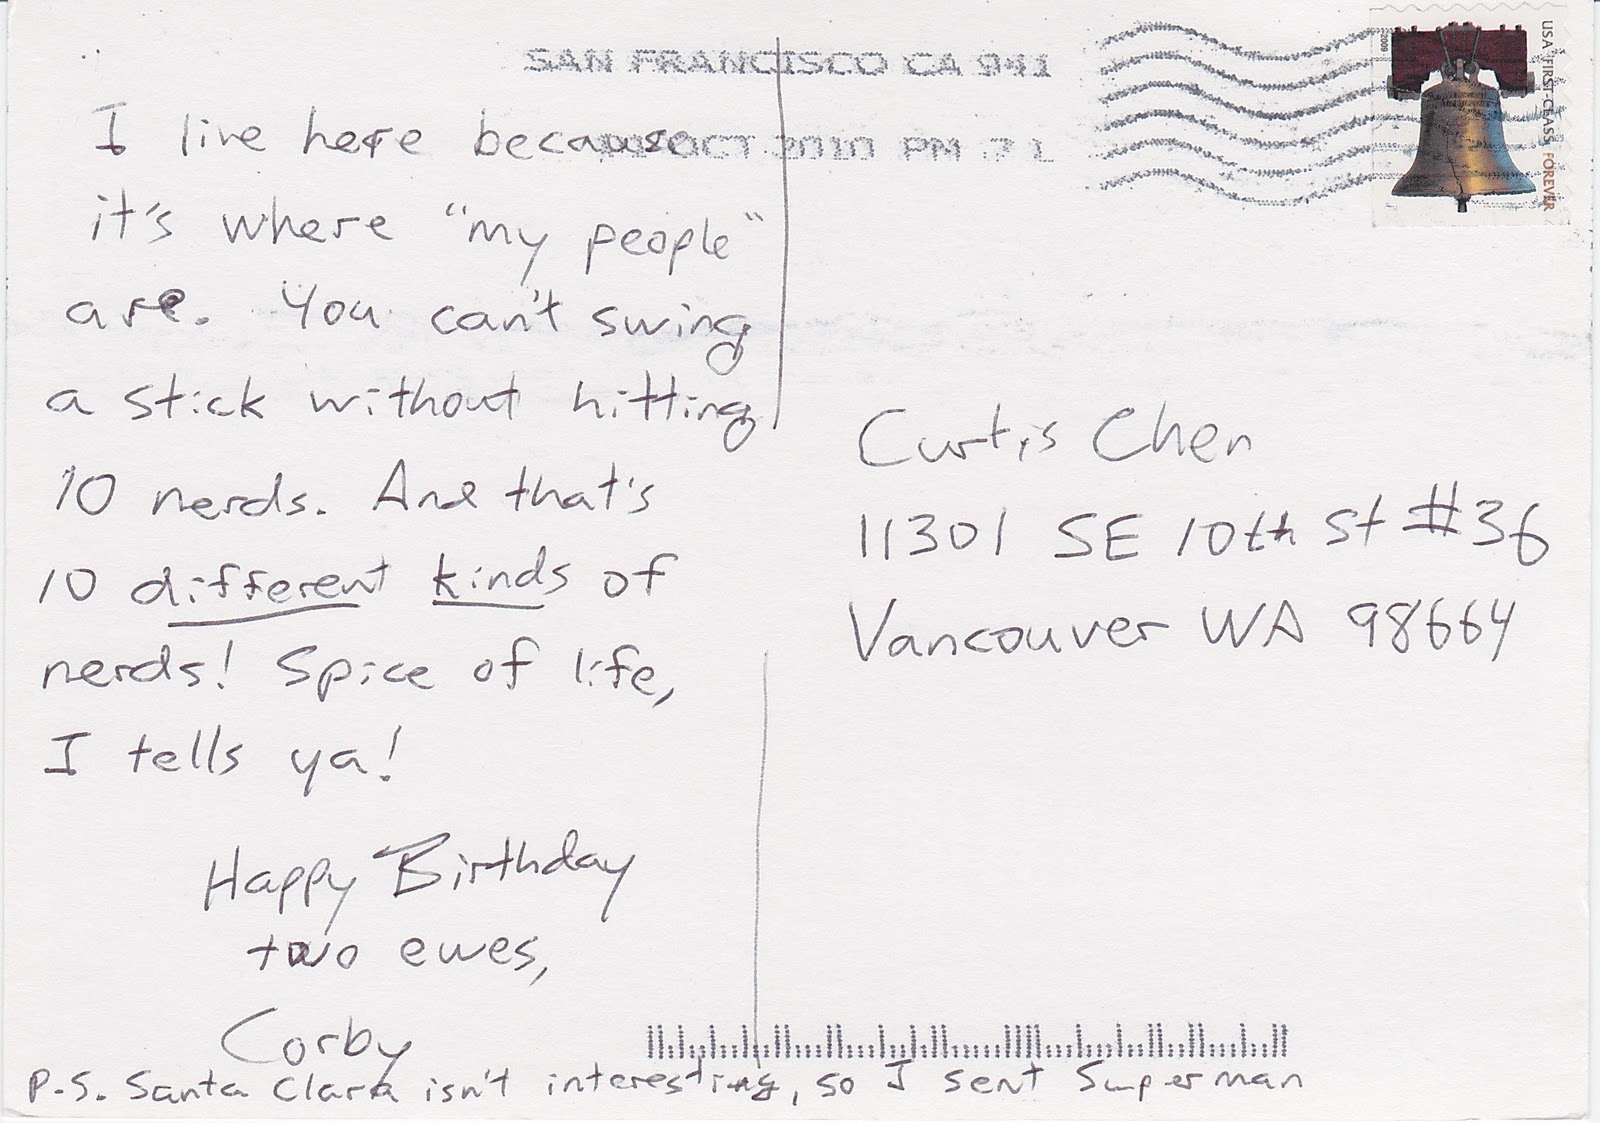 SAN FRANCISCO CA 941
OCT 2010 PM
USA FIRST-CLASS FOREVER
2009
I live here because
it's where "my people"
are. You can't swing
a stick without hitting
10 nerds. And that's
10 different kinds of
nerds! Spice of life,
I tells ya!
Happy Birthday
two ewes,
Corby
P.S. Santa Clara isn't interesting, so I sent Superman
Curtis Chen
11301 SE 10th St #36
Vancouver WA 98664